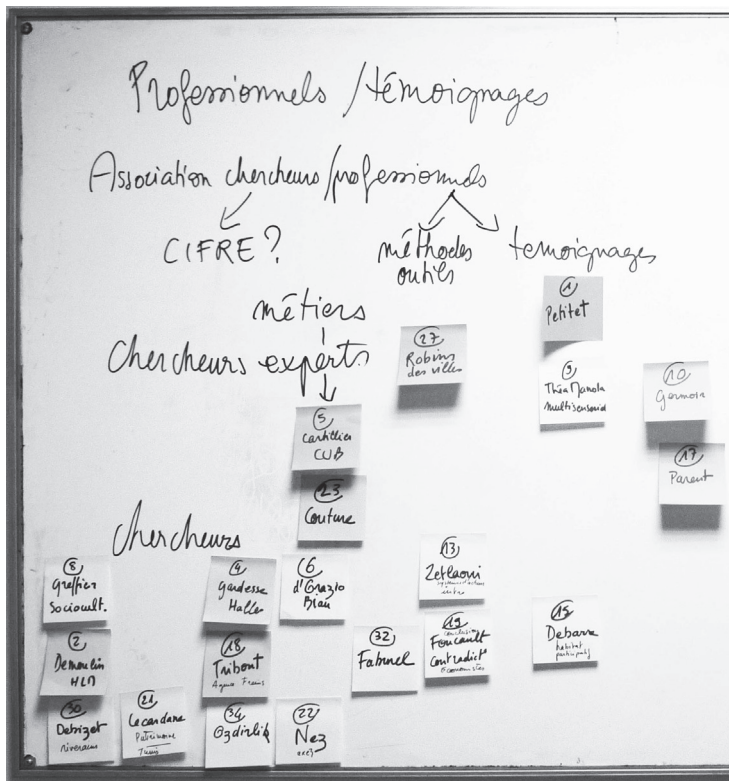 Professionnels / témoignages
Association chercheurs/professionnels
CIFRE ?
méthodes
outils
temoignages
métiers
Chercheurs experts
1
Petitet
27
Robins
des villes
9
Théa Manola
multisensoriel
10
Germain
17
Parent
5
Cartillier
CUB
23
Couture
Chercheurs
8
Greffier
Sociocult.
4
Gardesse
Halles
6
d'Orazio
Blau
13
Zetlaoui
2
Demoulin
HLM
18
Tribout
32
Faburel
19
conclusion
Foucault
Contradict°
économistes
15
Debarre
habitat
participatif
30
Debizet
riverains
21
Lecardane
Patrimoine
Tunis
34
Ozdirlik
22
Nez